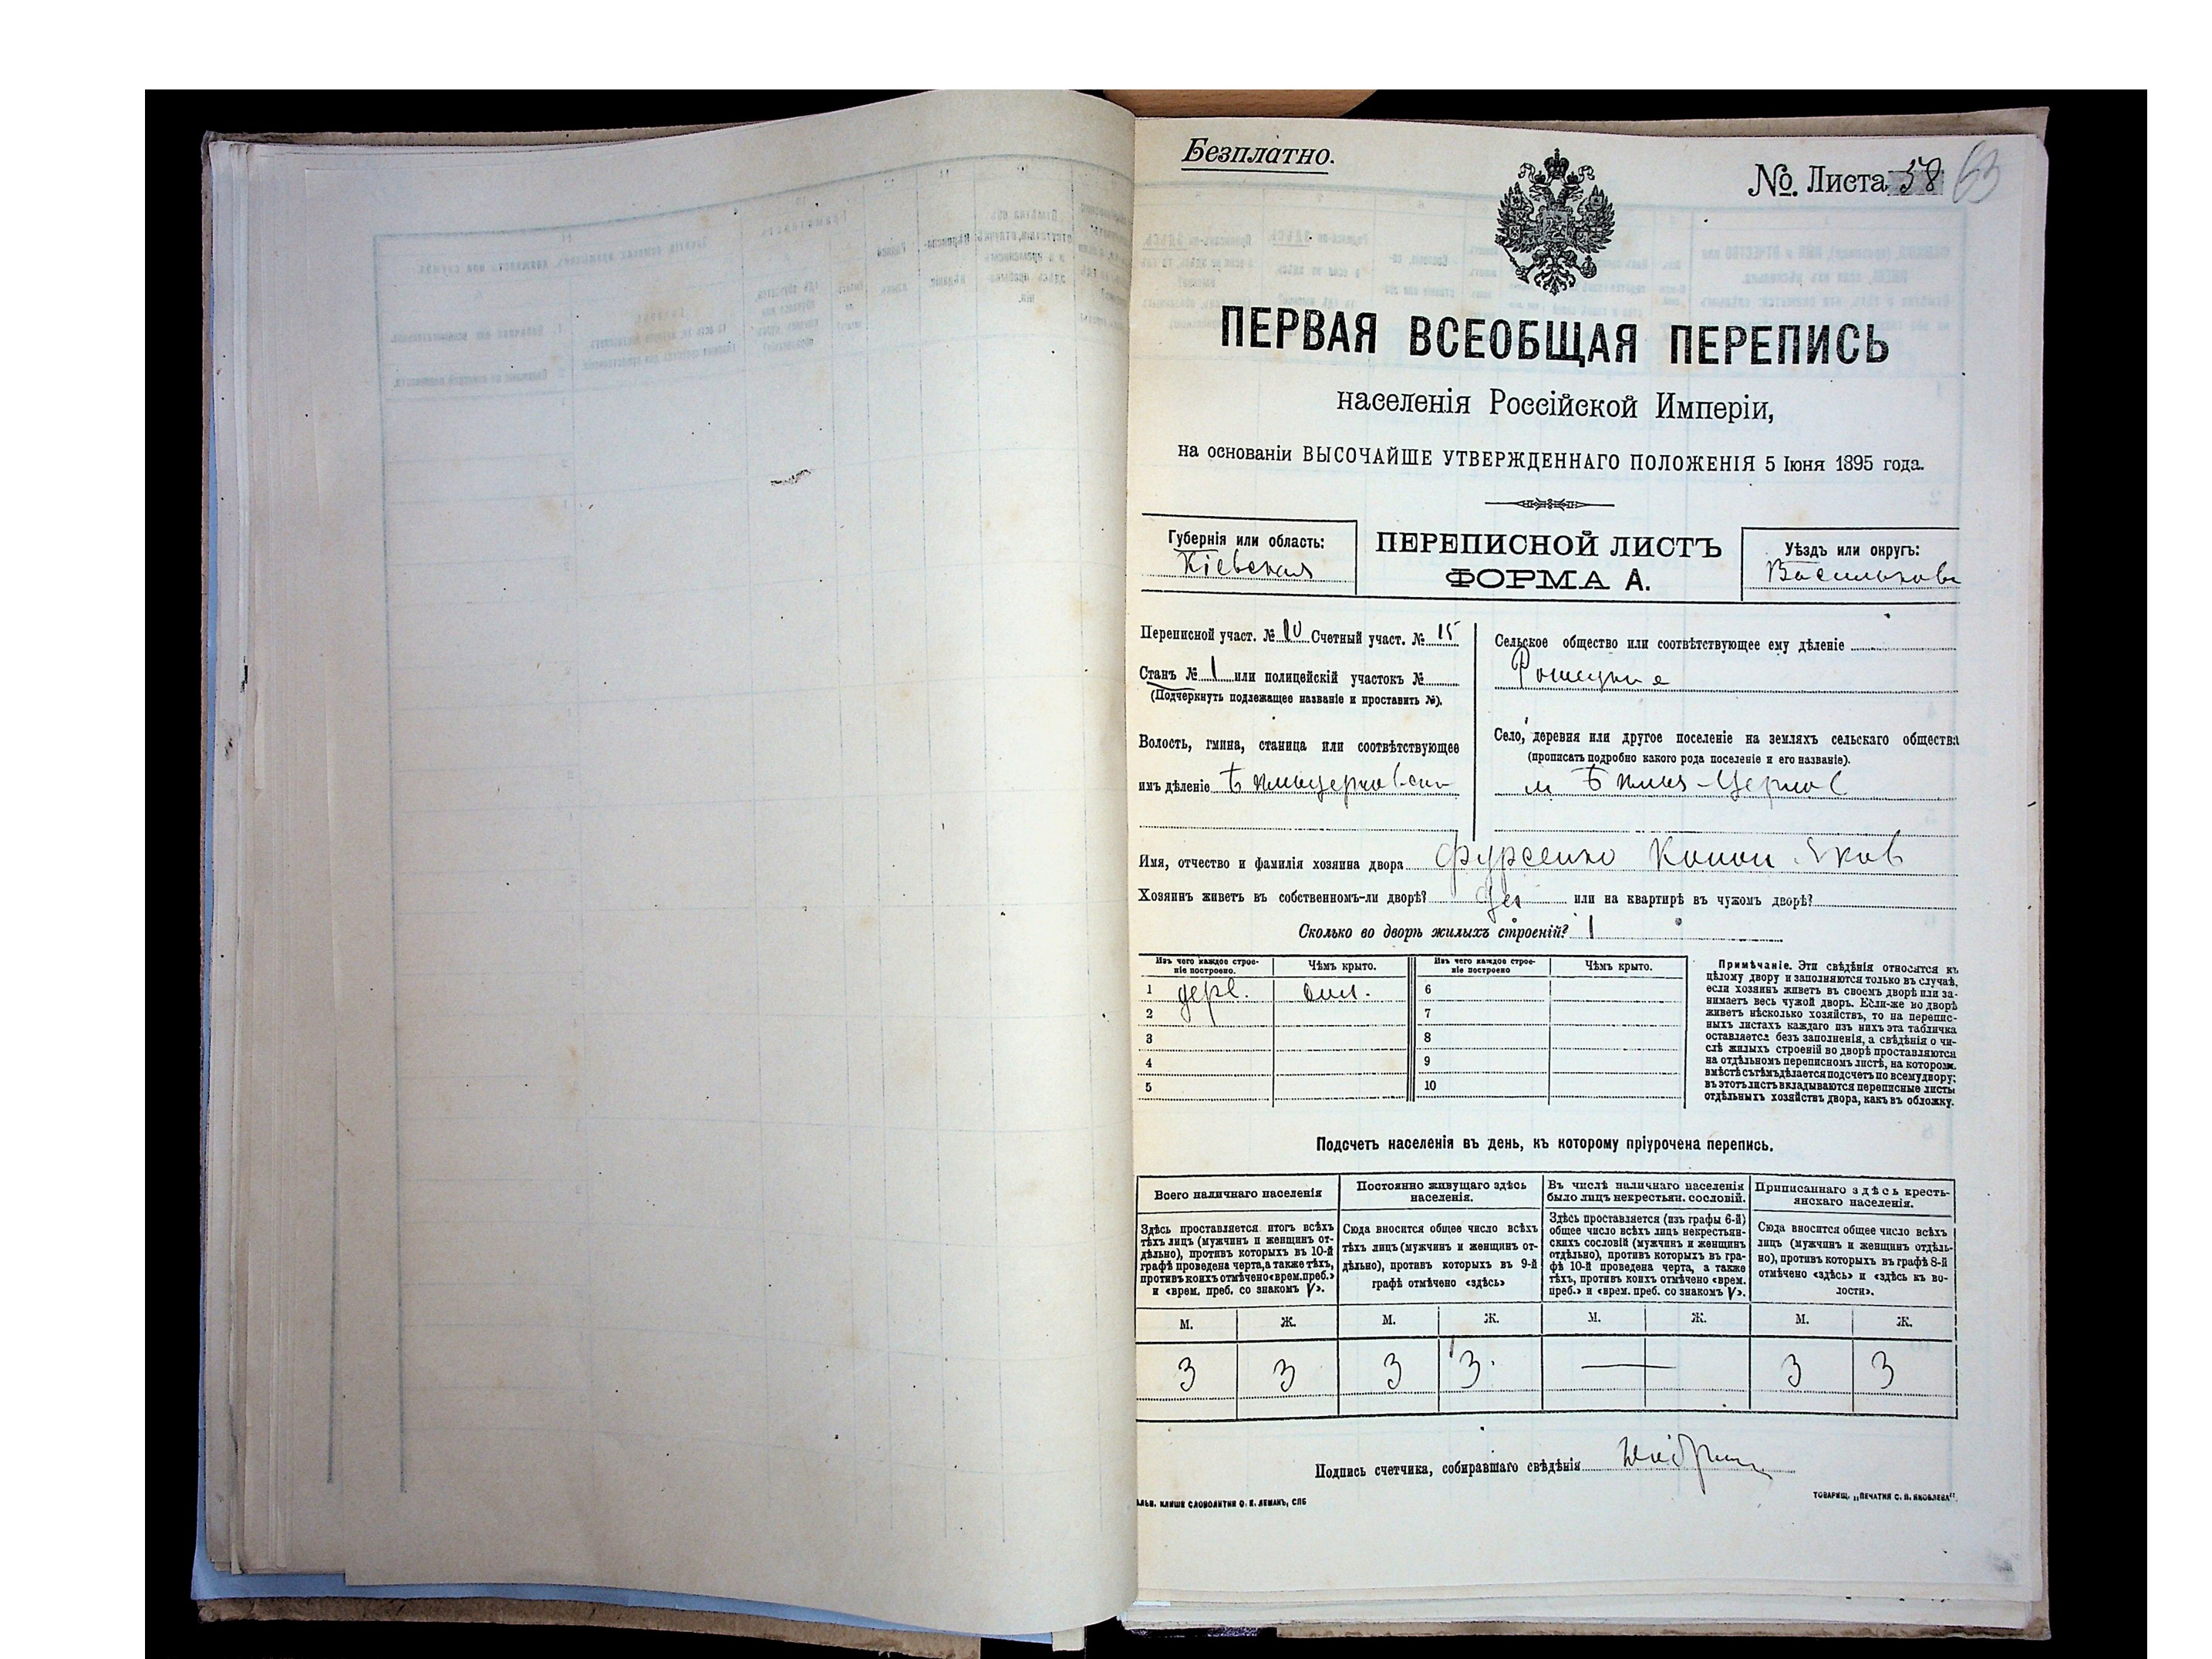 Безплатно.
№ Листа 58 63
ПЕРВАЯ ВСЕОБЩАЯ ПЕРЕПИСЬ
населенія Россійской Имперіи,
на основаніи ВЫСОЧАЙШЕ УТВЕРЖДЕННАГО ПОЛОЖЕНІЯ 5 Іюня 1895 года.
Губернія или область:
Кіевская
ПЕРЕПИСНОЙ ЛИСТЪ
ФОРМА А.
Уѣздъ или округъ:
Васильков
Переписной участ. № 10 Счетный участ. № 15
Станъ № 1 или полицейскій участокъ №
(Подчеркнуть подлежащее названіе и проставить №).
Волость, гмина, станица или соотвѣтствующее
имъ дѣленіе Бѣлоцерковская
Сельское общество или соотвѣтствующее ему дѣленіе
Село, деревня или другое поселеніе на земляхъ сельскаго общества
(прописать подробно какого рода поселеніе и его названіе).
м Бѣлая-Церков
Имя, отчество и фамилія хозяина двора Фурсенко Конон Яков
Хозяинъ живетъ въ собственномъ-ли дворѣ? или на квартирѣ въ чужомъ дворѣ?
Сколько во дворѣ жилыхъ строеній? 1
Изъ чего каждое строеніе построено.
Чѣмъ крыто.
Изъ чего каждое строеніе построено
Чѣмъ крыто.
1 дерв. 6
2 7
3 8
4 9
5 10
Примѣчаніе. Эти свѣдѣнія относятся къ
цѣлому двору и заполняются только въ случаѣ,
если хозяинъ живетъ въ своемъ дворѣ или за-
нимаетъ весь чужой дворъ. Если-же во дворѣ
живетъ нѣсколько хозяйствъ, то на перепис-
ныхъ листахъ каждаго изъ нихъ эта табличка
оставляется безъ заполненія, а свѣдѣнія о чи-
слѣ жилыхъ строеній во дворѣ проставляются
на отдѣльномъ переписномъ листѣ, на которомъ
вмѣстѣ съ тѣмъ дѣлается подсчетъ по всему двору;
въ этотъ листъ вкладываются переписные листы
отдѣльныхъ хозяйствъ двора, какъ въ обложку.
Подсчетъ населенія въ день, къ которому пріурочена перепись.
Всего наличнаго населенія
Здѣсь проставляется итогъ всѣхъ
тѣхъ лицъ (мужчинъ и женщинъ от-
дѣльно), противъ которыхъ въ 10-й
графѣ проведена черта, а также тѣхъ,
противъ коихъ отмѣчено «врем. преб.»
и «врем. преб. со знакомъ V».
Постоянно живущаго здѣсь
населенія.
Сюда вносится общее число всѣхъ
тѣхъ лицъ (мужчинъ и женщинъ от-
дѣльно), противъ которыхъ въ 9-й
графѣ отмѣчено «здѣсь»
Въ числѣ наличнаго населенія
было лицъ некрестьян. сословій.
Здѣсь проставляется (изъ графы 6-й)
общее число всѣхъ лицъ некрестьян-
скихъ сословій (мужчинъ и женщинъ
отдѣльно), противъ которыхъ въ гра-
фѣ 10-й проведена черта, а также
тѣхъ, противъ коихъ отмѣчено «врем.
преб.» и «врем. преб. со знакомъ V».
Приписаннаго здѣсь кресть-
янскаго населенія.
Сюда вносится общее число всѣхъ
лицъ (мужчинъ и женщинъ отдѣль-
но), противъ которыхъ въ графѣ 8-й
отмѣчено «здѣсь» и «здѣсь къ во-
лости».
М. Ж. М. Ж. М. Ж. М. Ж.
3 3 3 3 — 3 3
Подпись счетчика, собиравшаго свѣдѣнія
КЛИШЕ СЛОВОЛИТНИ О. И. ЛЕМАНЪ, СПБ
ТОВАРИЩ. „ПЕЧАТНЯ С. П. ЯКОВЛЕВА“.